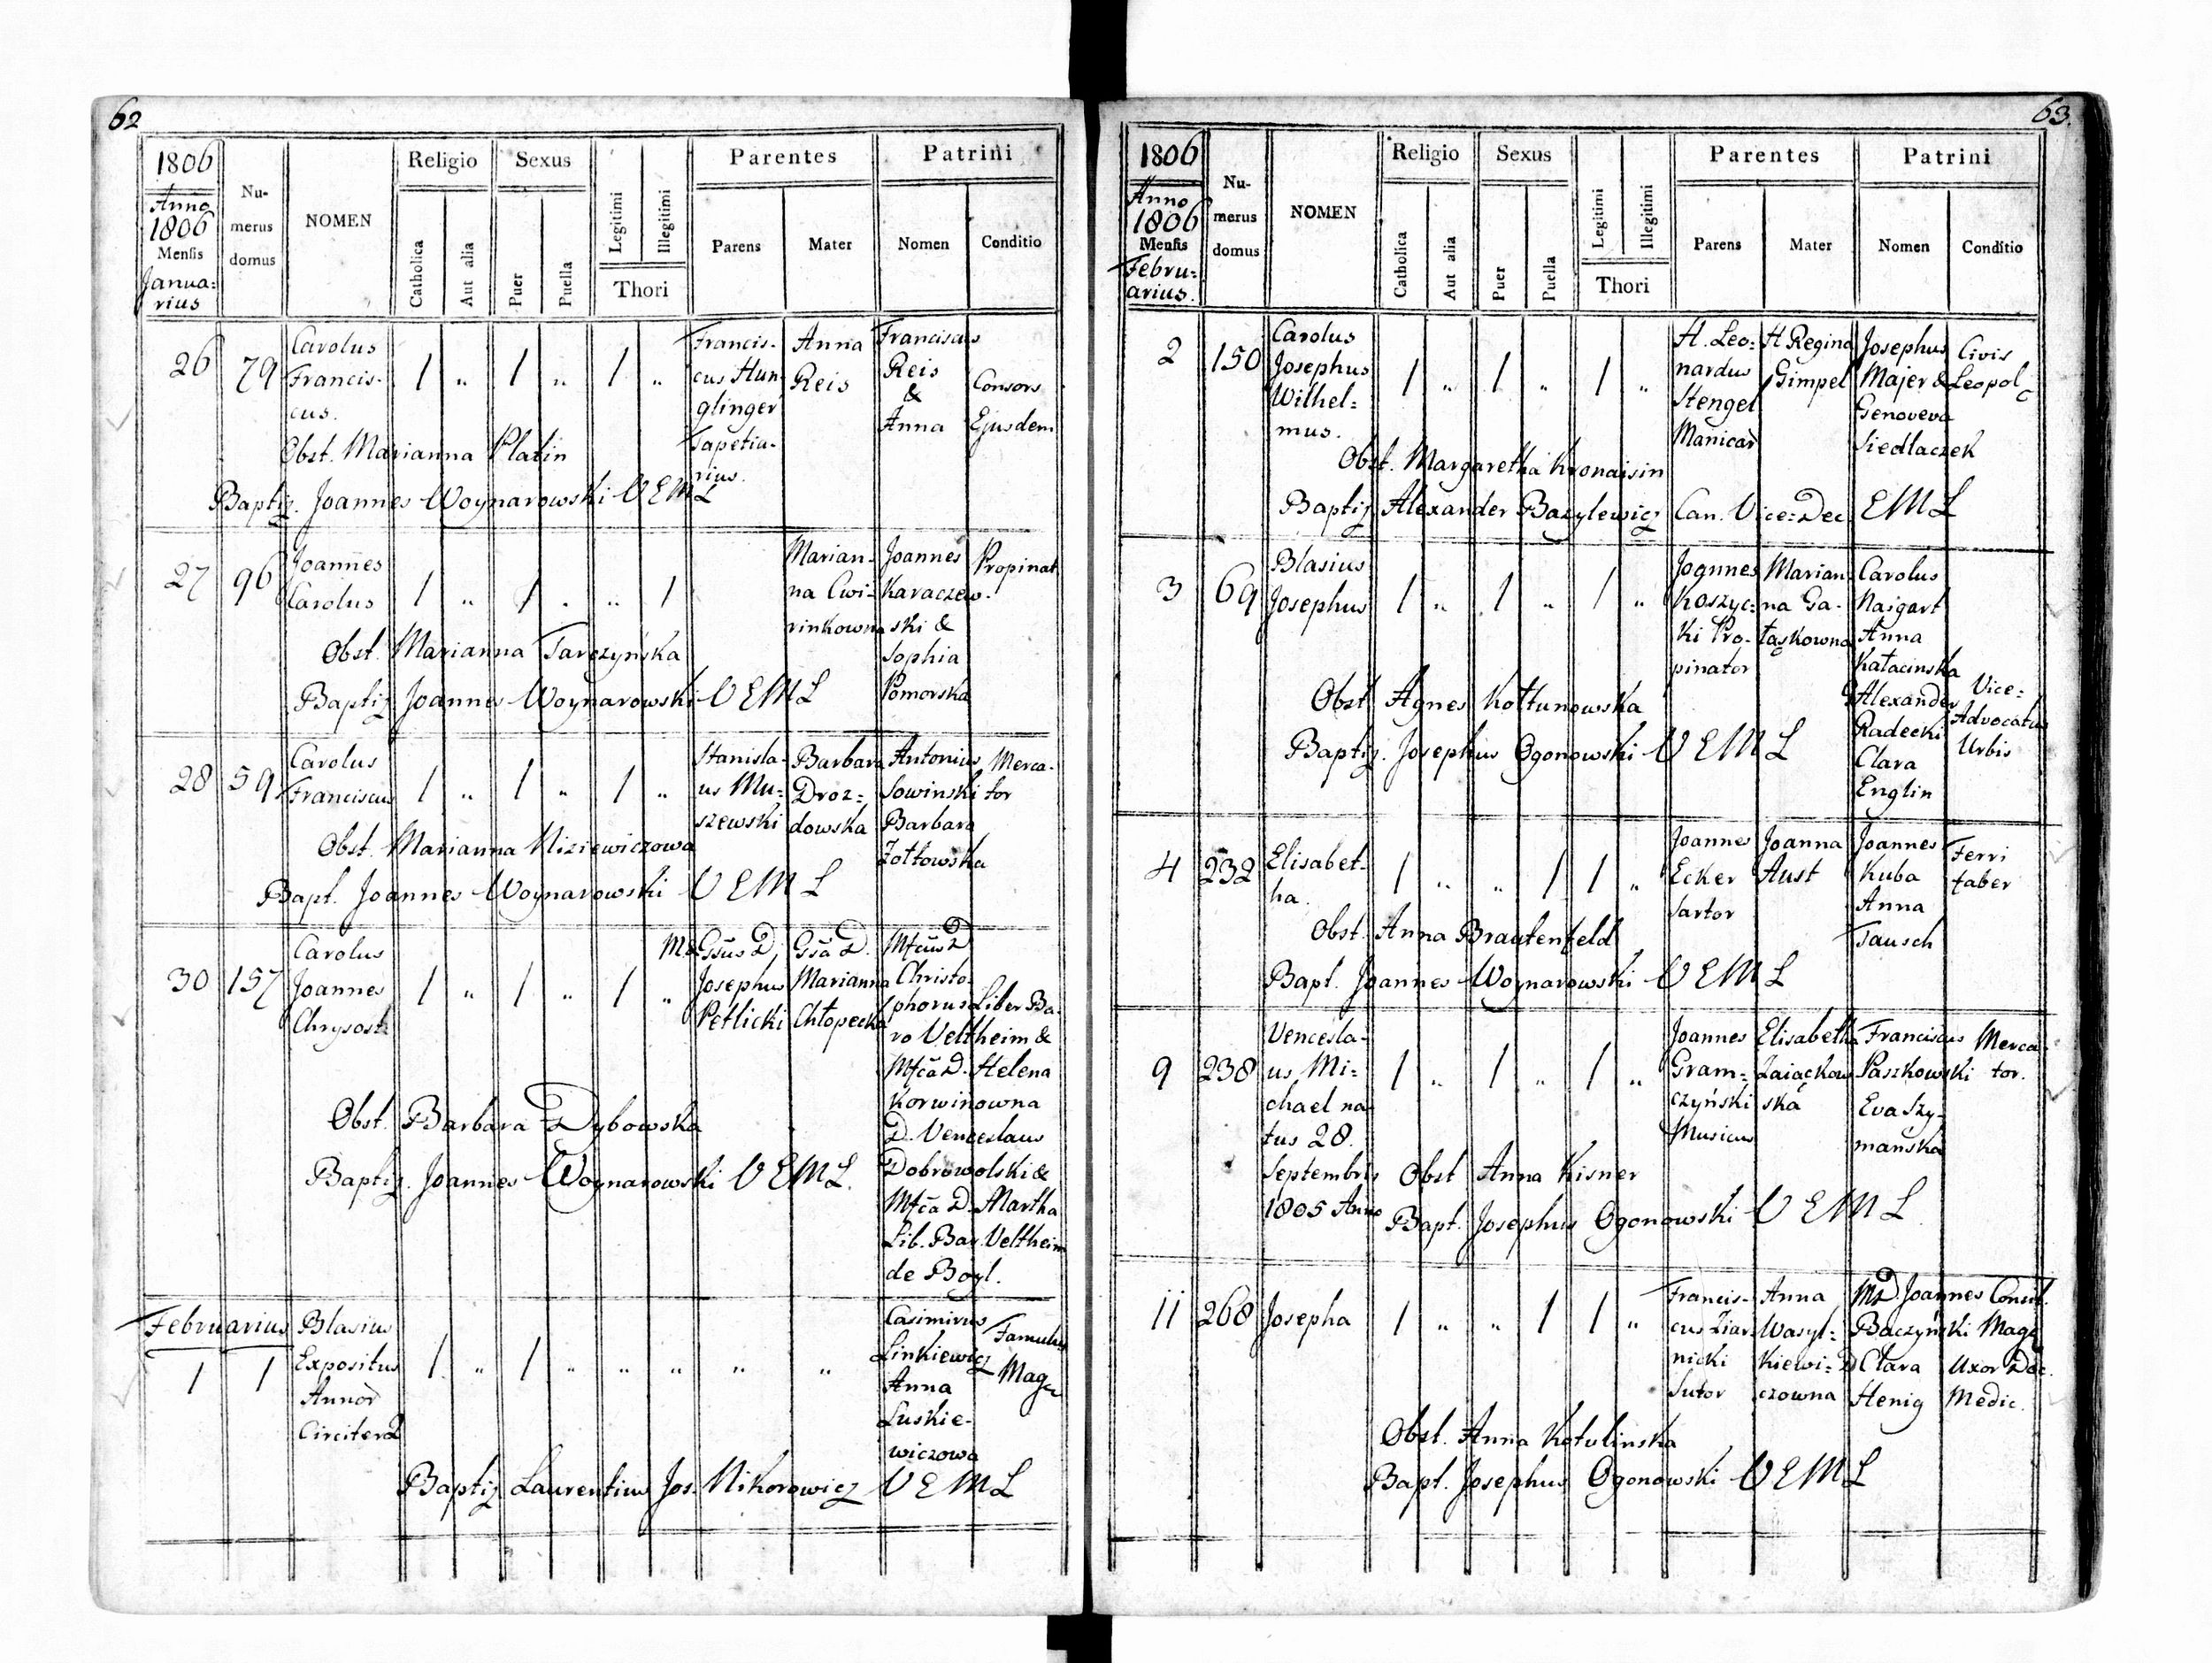 62
1806
Anno
1806
Mensis
Janua:
rius
Nu-
merus
domus
NOMEN
Religio
Catholica
Aut alia
Sexus
Puer
Puella
Legitimi
Illegitimi
Thori
Parentes
Parens
Mater
Patrini
Nomen
Conditio
26
79
Carolus
Francis-
cus.
1 " 1 " 1 "
Francis-
cus Hun
glinger
Tapetia-
rius.
Anna
Reis
Franciscus
Reis
&
Anna
Consors
Ejusdem
Obst. Marianna Platin
Baptiz. Joannes Woynarowski V E M L
27
96
Joannes
Carolus
1 " 1 " " 1
Marian-
na Cwi-
rinkowna
Joannes
Karaczew-
ski &
Sophia
Pomorska
Propinat
Obst. Marianna Tarczyńska
Baptiz Joannes Woynarowski V E M L
28
59
Carolus
Franciscus
1 " 1 " 1 "
Stanisla-
us Mu-
szewski
Barbara
Droz-
dowska
Antonius
Sowinski
Barbara
Żołtowska
Merca-
tor
Obst. Marianna Niziewiczowa
Bapt. Joannes Woynarowski V E M L
30
157
Carolus
Joannes
Chrysost
1 " 1 " 1 "
Josephus
Petlicki
Gsa D.
Marianna
Chłopecka
Christo-
phorus Liber Ba-
ro Veltheim &
Mfca D. Helena
Korwinowna
D. Venceslaus
Dobrowolski &
Mfca D. Martha
Lib. Bar. Veltheim
de Bogl.
Obst. Barbara Dybowska
Baptiz. Joannes Woynarowski V E M L.
Februarius
1
1
Blasius
Expositus
Annor
Circiter 2
1 " 1 " " " " "
Casimirus
Linkiewicz
Anna
Luskie-
wiczowa
Famulus
Mag
Baptiz Laurentius Jos. Nikorowicz V E M L
63.
1806
Anno
1806
Mensis
Febru:
arius.
Nu-
merus
domus
NOMEN
Religio
Catholica
Aut alia
Sexus
Puer
Puella
Legitimi
Illegitimi
Thori
Parentes
Parens
Mater
Patrini
Nomen
Conditio
2
150
Carolus
Josephus
Wilhel=
mus.
1 " 1 " 1 "
H. Leo:
nardus
Stengel
Manicar
H Regina
Gimpel
Josephus
Majer &
Genoveva
Siedlaczek
Civis
Leopol
Obst. Margaretha Kronaisin
Baptiz Alexander Bazylewicz Can. Vice=Dec. E M L
3
69
Blasius
Josephus
1 " 1 " 1 "
Joannes
Koszyc-
ki Pro-
pinator
Marian
na Ga-
łąskowna
Carolus
Naigart
Anna
Katacinska
Alexander
Radecki
Clara
Englin
Vice=
Advocatus
Urbis
Obst Agnes Kołtunowska
Baptiz. Josephus Ogonowski V E M L
4
232
Elisabet-
ha.
1 " " 1 1 "
Joannes
Ecker
Sartor
Joanna
Aust
Joannes
Kuba
Anna
Tausch
Ferri
faber
Obst. Anna Brautenfeld
Bapt. Joannes Woynarowski V E M L
9
238
Vencesla-
us Mi=
chael na-
tus 28.
Septembris
1805 Anno
1 " 1 " 1 "
Joannes
Gram=
czyński
Musicus
Elisabetha
Zaiączkow
ska
Franciscus
Paszkowski
Eva Szy-
manska
Merca-
tor.
Obst Anna Kisner
Bapt. Josephus Ogonowski V E M L
11
268
Josepha
1 " " 1 1 "
Francis-
cus Ziar
nicki
Sutor
Anna
Wasyl=
kiewi=
czowna
Joannes
Baczyński
D Clara
Henig
Consil.
Mag
Uxor Doc.
Medic.
Obst. Anna Kotulinska
Bapt. Josephus Ogonowski V E M L